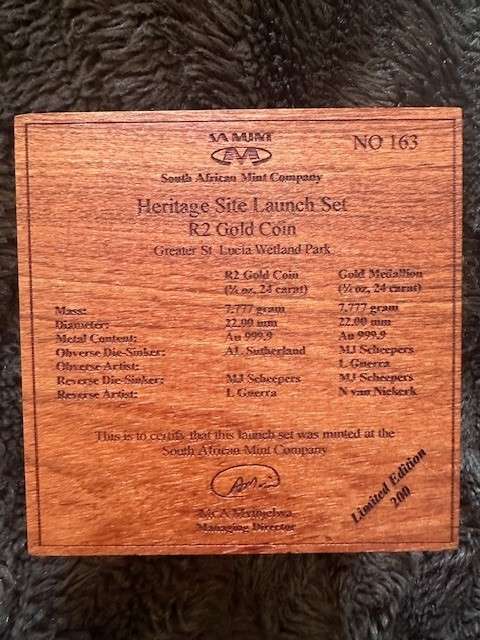 SA MINT
NO 163
South African Mint Company
Heritage Site Launch Set
R2 Gold Coin
Greater St. Lucia Wetland Park
R2 Gold Coin Gold Medallion
(¼ oz, 24 carat) (¼ oz, 24 carat)
Mass: 7.777 gram 7.777 gram
Diameter: 22.00 mm 22.00 mm
Metal Content: Au 999,9 Au 999,9
Obverse Die-Sinker: AL Sutherland MJ Scheepers
Obverse Artist: L Guerra
Reverse Die-Sinker: MJ Scheepers MJ Scheepers
Reverse Artist: L Guerra N van Niekerk
This is to certify that this launch set was minted at the
South African Mint Company
Managing Director
Limited Edition
200